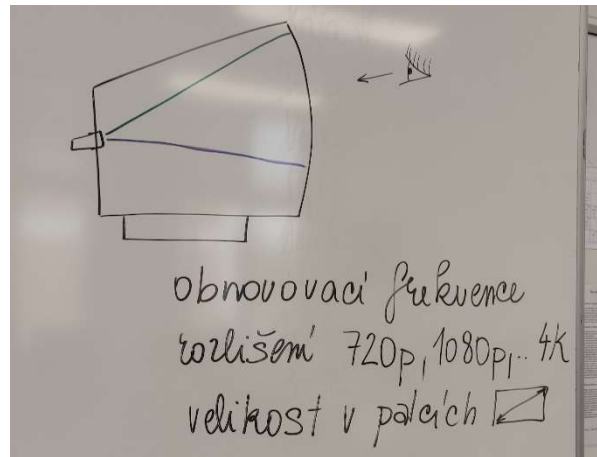 obnovovací frekvence
rozlišení 720p, 1080p,.. 4K
velikost v palcích